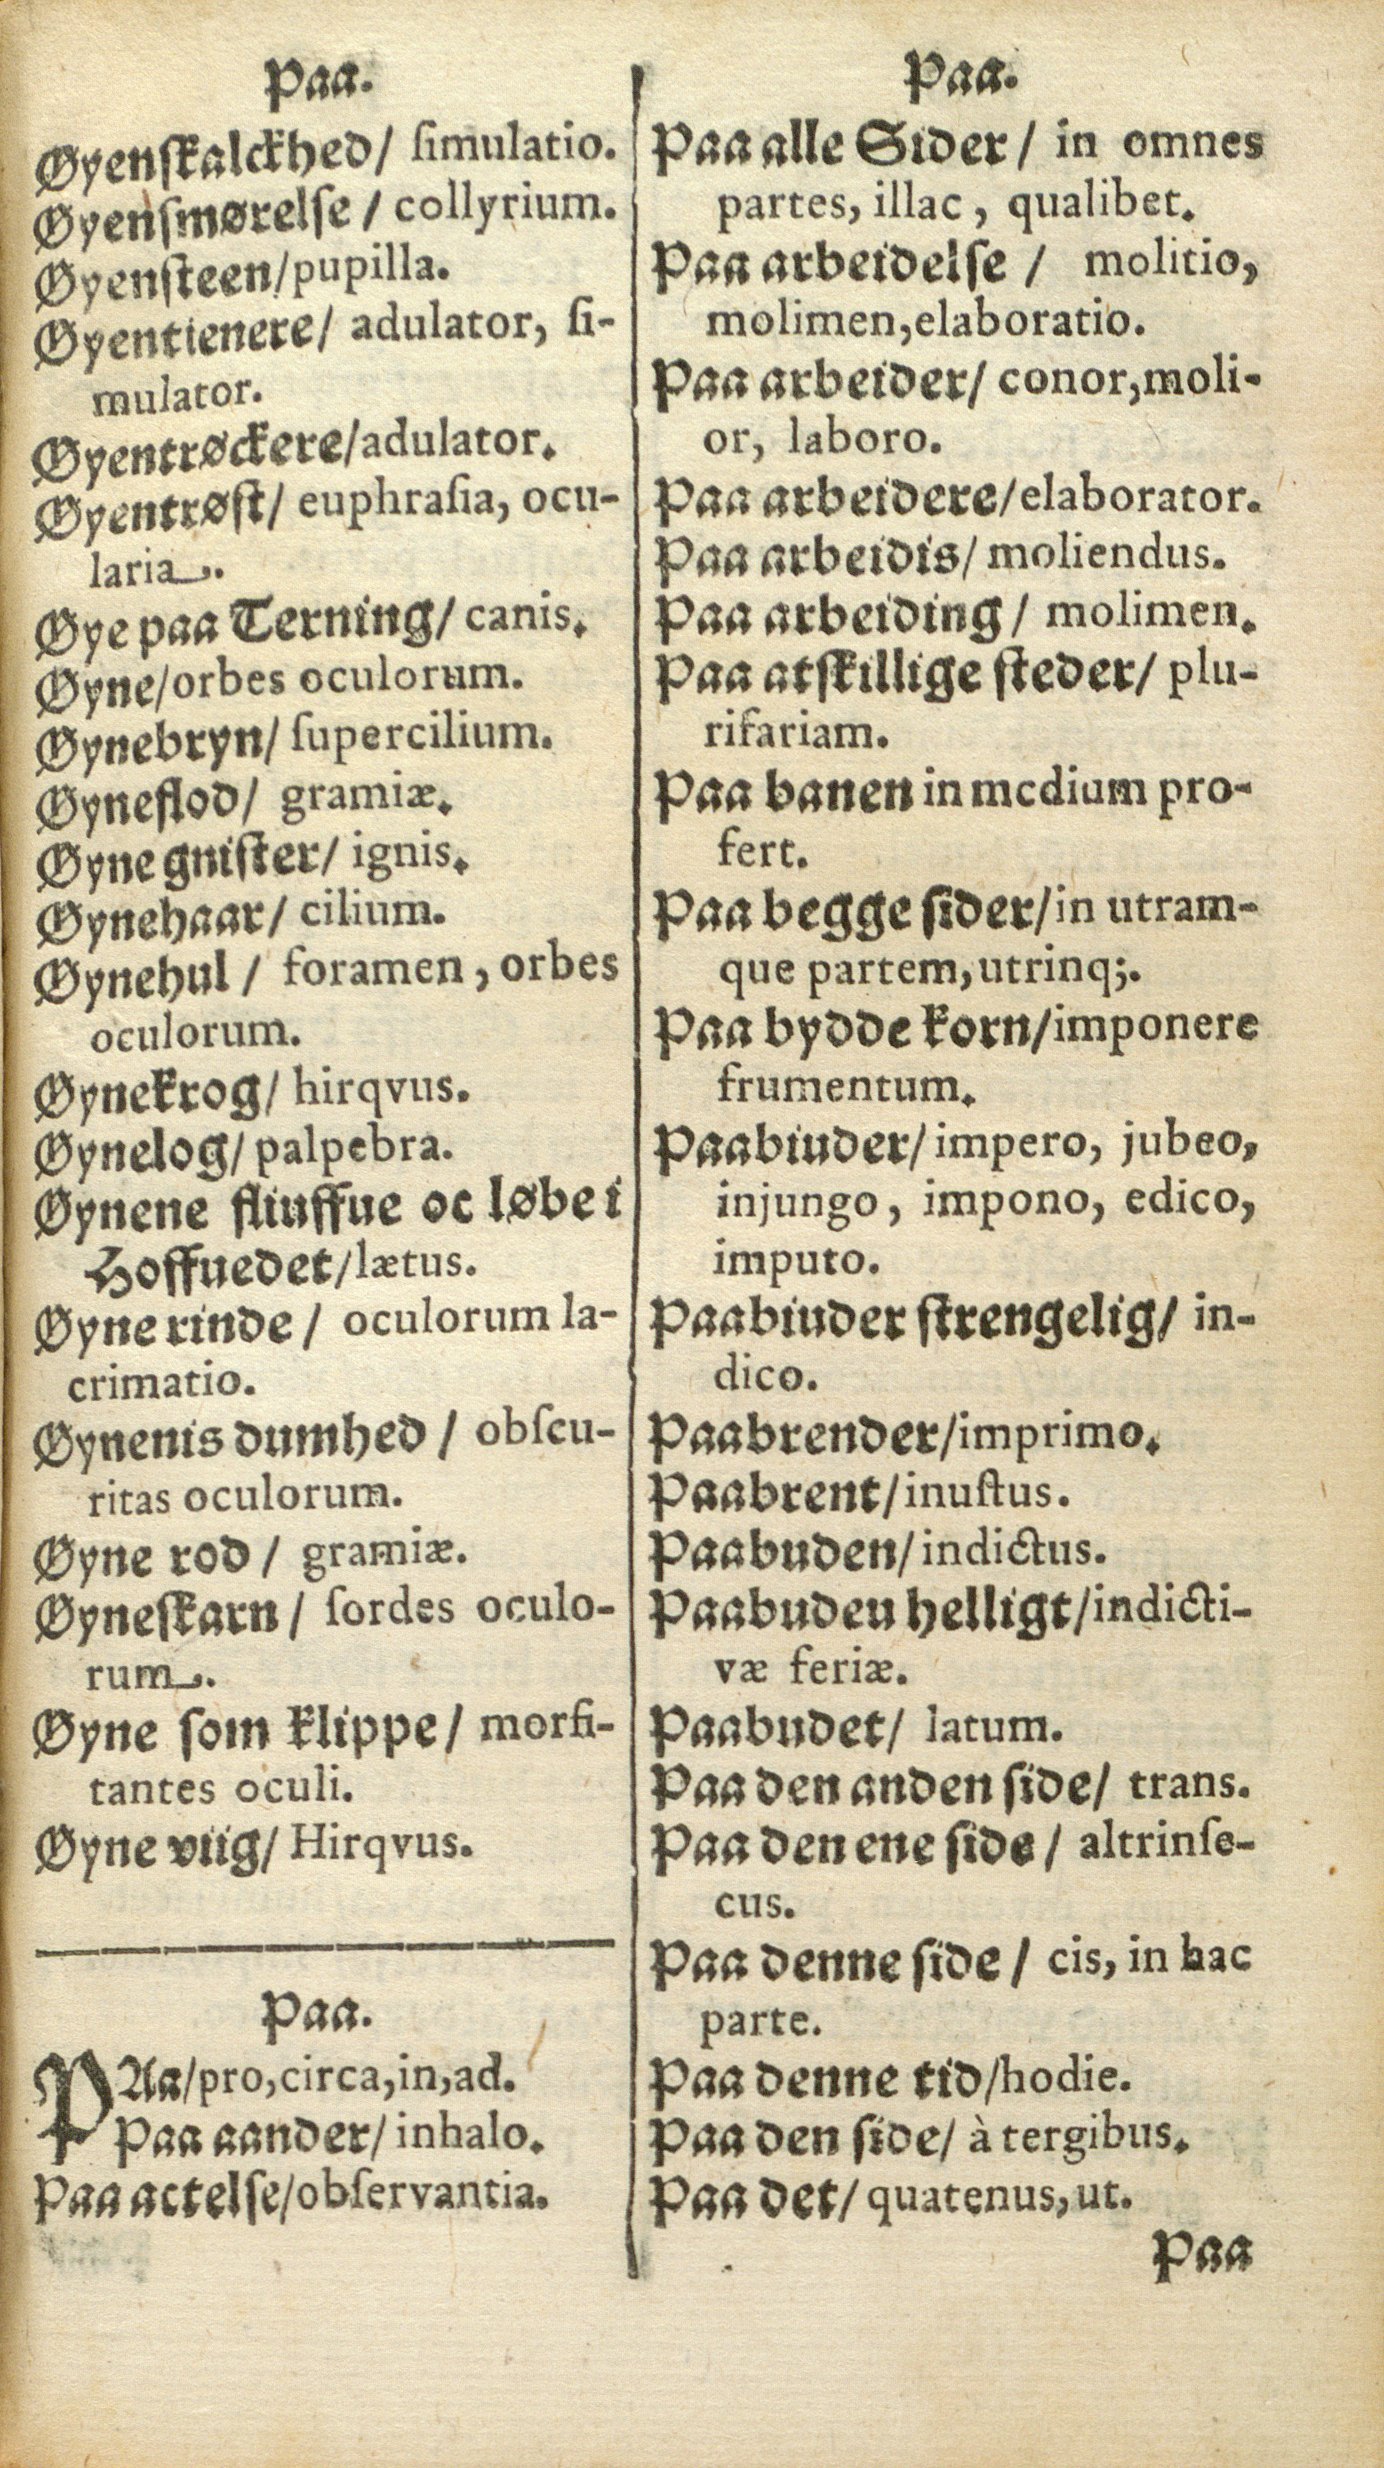 Paa.
Øyenſkalckhed/ ſimulatio.
Øyenſmørelſe / collyrium.
Øyenſteen/pupilla.
Øyentienere/ adulator, ſi-
mulator.
Øyentrøckere/adulator.
Øyentrøſt/ euphraſia, ocu-
laria.
Øye paa Terning/ canis.
Øyne/orbes oculorum.
Øynebryn/ ſupercilium.
Øyneflod/ gramiæ.
Øyne gniſter/ ignis.
Øynehaar/ cilium.
Øynehul / foramen, orbes
oculorum.
Øynekrog/ hirqvus.
Øynelog/ palpebra.
Øynene fliuffue oc løbe i
Hoffuedet/lætus.
Øyne rinde / oculorum la-
crimatio.
Øynenis dumhed / obſcu-
ritas oculorum.
Øyne rod / gramiæ.
Øyneſkarn / ſordes oculo-
rum.
Øyne ſom klippe/ morſi-
tantes oculi.
Øyne viig/ Hirqvus.
Paa.
PAa/pro,circa,in,ad.
Paa aander/ inhalo.
Paa actelſe/obſervantia.
Paa.
Paa alle Sider / in omnes
partes, illac, qualibet.
Paa arbeidelſe / molitio,
molimen,elaboratio.
Paa arbeider/ conor,moli-
or, laboro.
Paa arbeidere/elaborator.
Paa arbeidis/ moliendus.
Paa arbeiding / molimen.
Paa atſkillige ſteder/ plu-
rifariam.
Paa banen in medium pro-
fert.
Paa begge ſider/in utram-
que partem,utrinq;.
Paa bydde korn/imponere
frumentum.
Paabiuder/ impero, jubeo,
injungo, impono, edico,
imputo.
Paabiuder ſtrengelig/ in-
dico.
Paabrender/imprimo.
Paabrent/inuſtus.
Paabuden/ indictus.
Paabudeu helligt/indicti-
væ feriæ.
Paabudet/ latum.
Paa den anden ſide/ trans.
Paa den ene ſide / altrinſe-
cus.
Paa denne ſide / cis, in hac
parte.
Paa denne tid/hodie.
Paa den ſide/ à tergibus.
Paa det/ quatenus,ut.
Paa